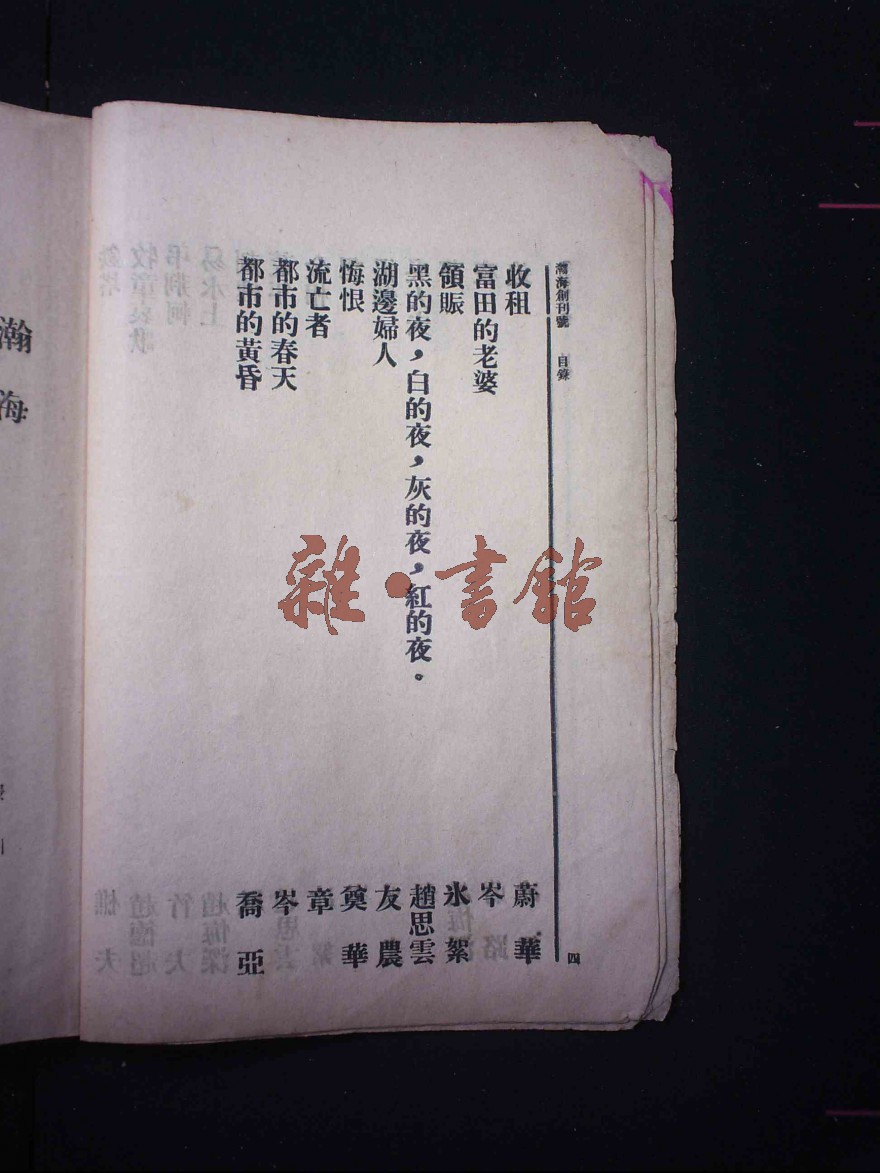 瀚海創刊號　目錄
四
收租　蔚華
富田的老婆　岑
領賑　氷絮
黑的夜，白的夜，灰的夜，紅的夜。　趙思雲
湖邊婦人　友農
悔恨　奠華
流亡者　章
都市的春天　岑
都市的黃昏　喬亞
瀚海
雜·書館